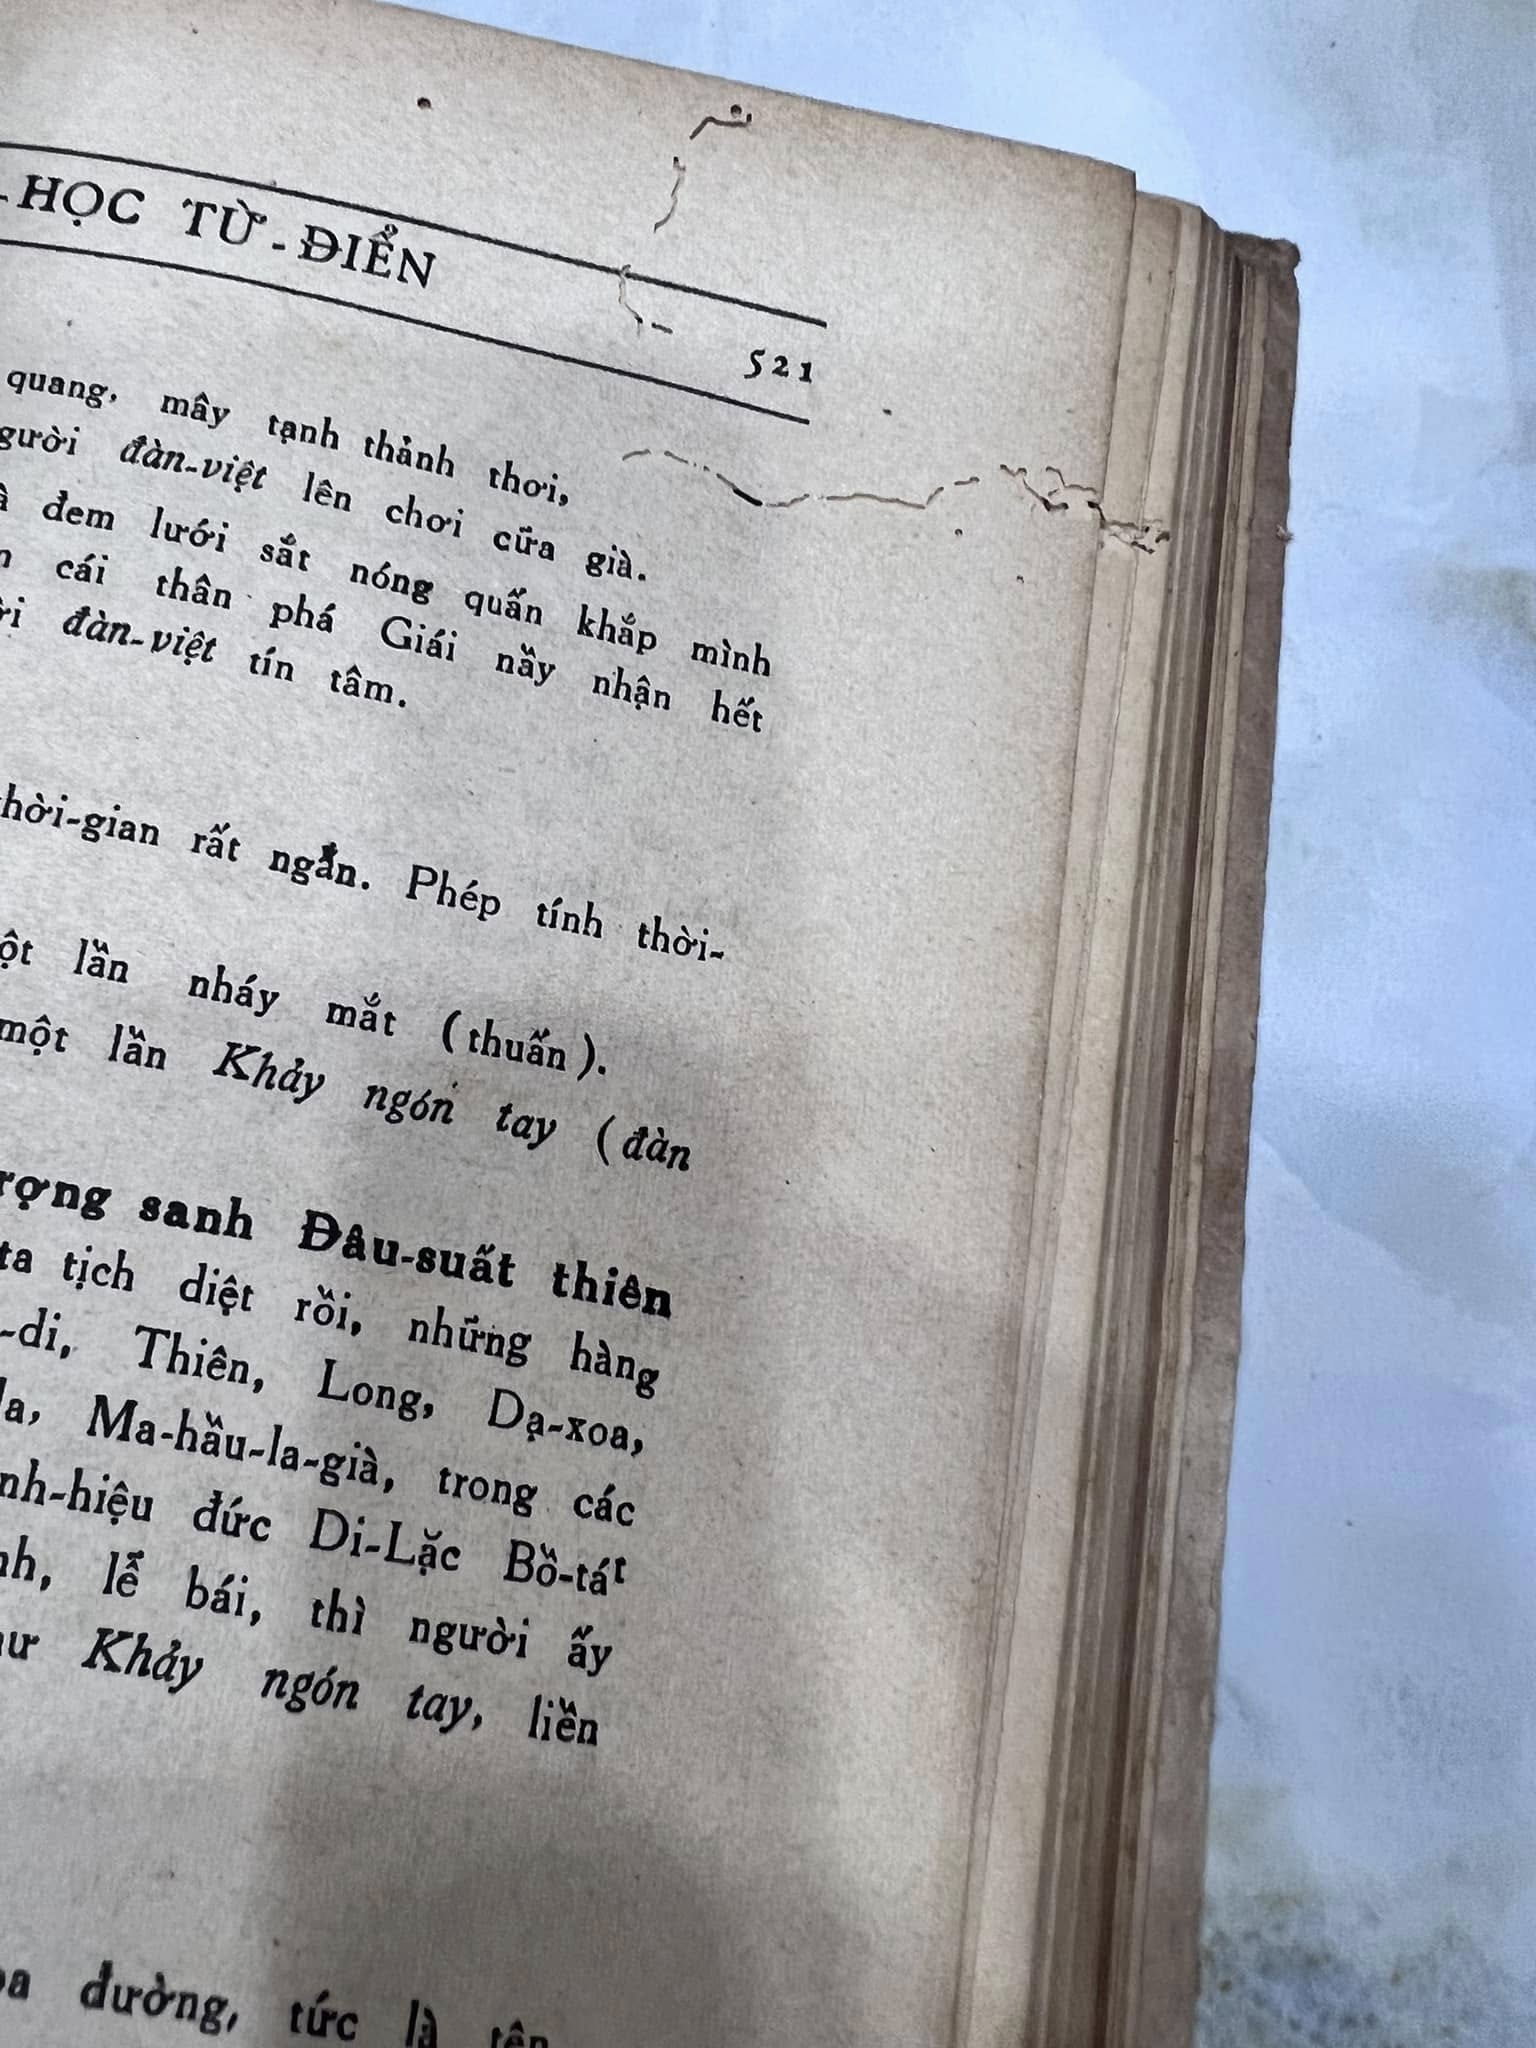 -HỌC TỪ-ĐIỂN
521
quang, mây tạnh thảnh thơi,
đàn-việt lên chơi cửa già.
đem lưới sắt nóng quấn khắp mình
cái thân phá Giái nầy nhận hết
đàn-việt tín tâm.
-gian rất ngắn. Phép tính thời-
lần nháy mắt (thuấn).
một lần Khảy ngón tay (đàn
sanh Đâu-suất thiên
ta tịch diệt rồi, những hàng
-di, Thiên, Long, Dạ-xoa,
Ma-hầu-la-già, trong các
-hiệu đức Di-Lặc Bồ-tát
lễ bái, thì người ấy
Khảy ngón tay, liền
đường, tức là tên